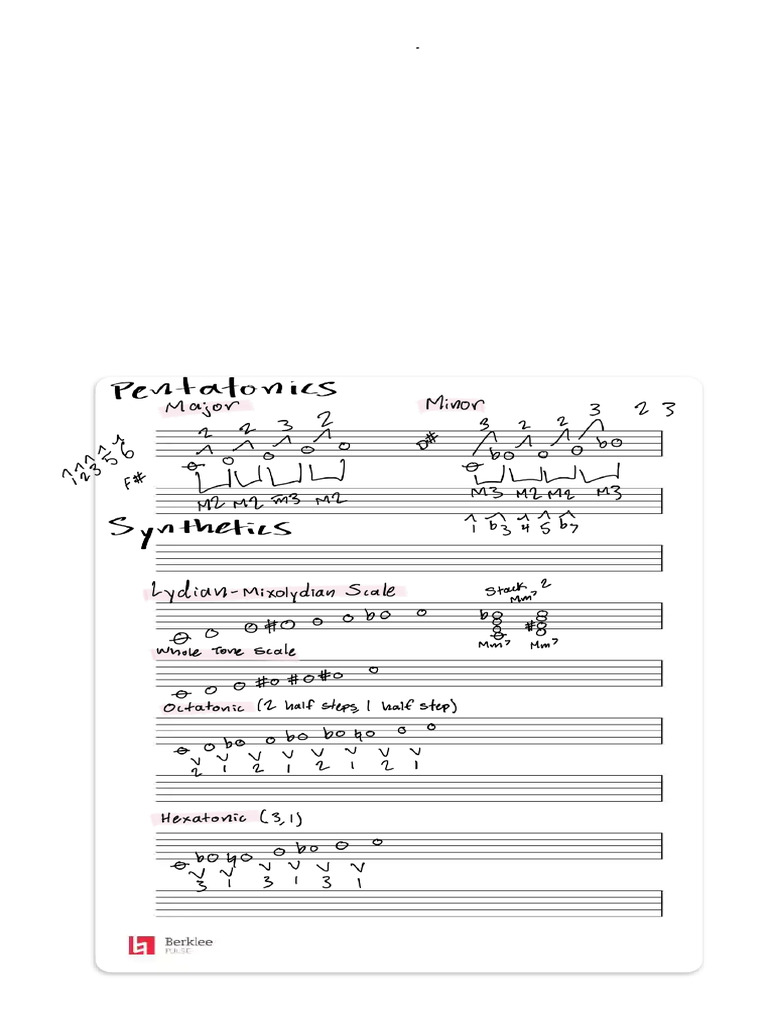 Pentatonics
Major Minor
2 2 3 2 3 2 2 3 2 3
1 2 3 5 6 F# D#
M2 M2 m3 M2 M3 M2 M2 M3
Synthetics 1 b3 4 5 b7
Lydian-Mixolydian Scale Stack 2 Mm7
Mm7 Mm7
Whole Tone Scale
Octatonic (2 half steps, 1 half step)
2 1 2 1 2 1 2 1
Hexatonic (3,1)
3 1 3 1 3 1
Berklee
PULSE